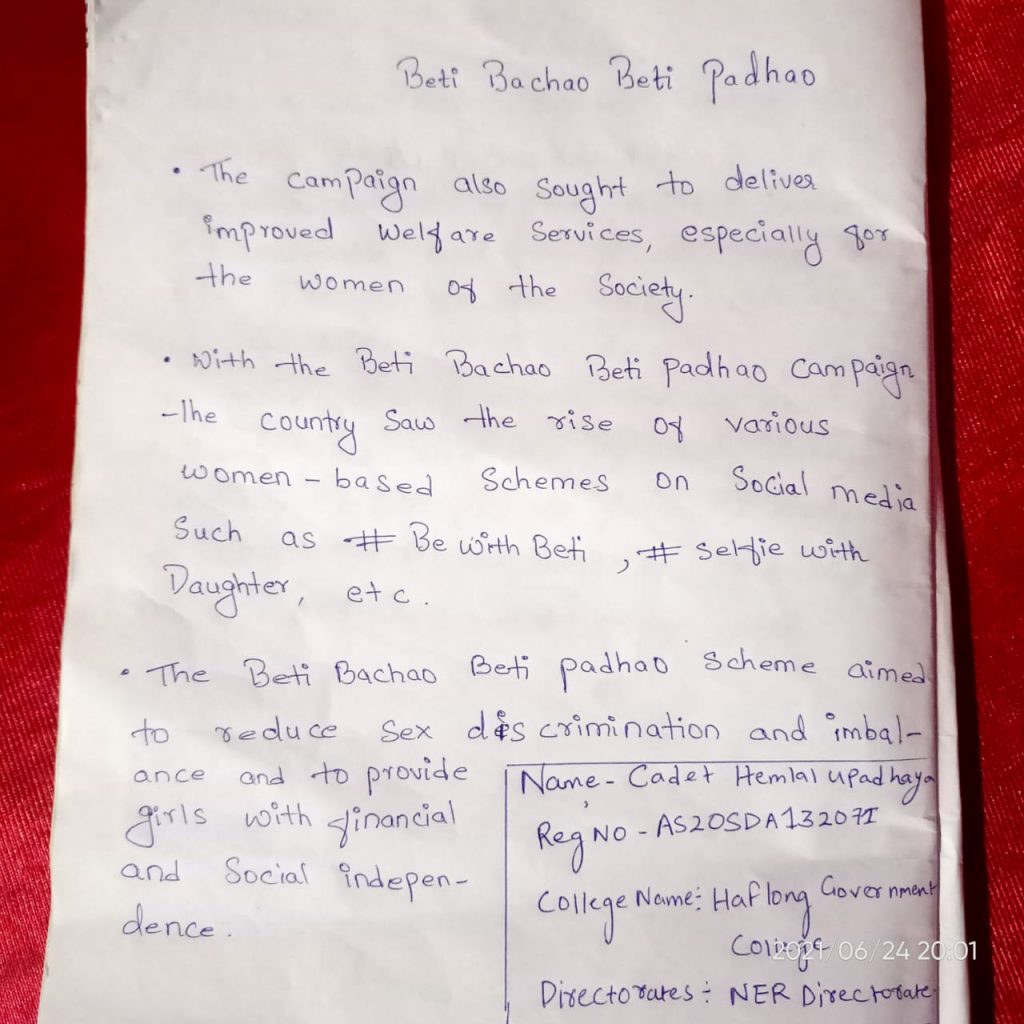 Beti Bachao Beti Padhao
• The campaign also sought to deliver
improved welfare services, especially for
the women of the Society.
• With the Beti Bachao Beti padhao campaign
The country saw the rise of various
women-based schemes on Social media
Such as # Be with Beti, # selfie with
Daughter, etc.
• The Beti Bachao Beti padhao scheme aimed
to reduce sex discrimination and imbal-
ance and to provide
girls with financial
and Social indepen-
dence.
Name - Cadet Hemlal upadhaya
Reg NO - AS20SDA132071
College Name: Haflong Government
College
Directorates: NER Directorate
2021/06/24 20:01